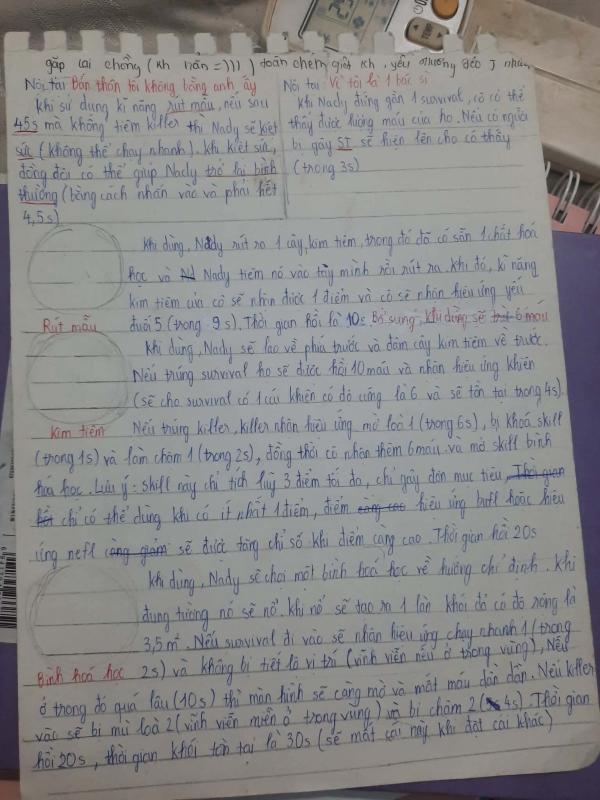 gặp lại chồng (kh hẳn =))) ) toàn chém giết kh, yêu thương
Nội tại Bản thân tôi không bằng anh ấy
khi sử dụng kĩ năng rút máu, nếu sau
45s mà không tiêm killer thì Nady sẽ kiệt
sức (không thể chạy nhanh). Khi kiệt sức,
đồng đội có thể giúp Nady trở lại bình
thường (bằng cách nhấn vào và phải hết
4,5s)
Nội tại Vì tôi là 1 bác sĩ
khi Nady đứng gần 1 survival, cô có thể
thấy được lượng máu của họ. Nếu có người
bị gây ST sẽ hiện lên cho cô thấy
(trong 3s)
Khi dùng, Nady rút ra 1 cây kim tiêm, trong đó đã có sẵn 1 chất hoá
học và Nady tiêm nó vào tay mình rồi rút ra. Khi đó, kĩ năng
kim tiêm của cô sẽ nhận được 1 điểm và cô sẽ nhận hiệu ứng yếu
đuối 5 (trong 9s). Thời gian hồi là 10s. Bổ sung: khi dùng sẽ trừ 6 máu
Rút máu
Khi dùng, Nady sẽ lao về phía trước và đâm cây kim tiêm về trước.
Nếu trúng survival họ sẽ được hồi 10 máu và nhận hiệu ứng khiên
(sẽ cho survival có 1 cái khiên có độ cứng là 6 và sẽ tồn tại trong 4s).
Kim tiêm
Nếu trúng killer, killer nhận hiệu ứng mờ loà 1 (trong 6s), bị khoá skill
(trong 1s) và làm chậm 1 (trong 2s), đồng thời cô nhận thêm 6 máu và mở skill bình
hoá học. Lưu ý: skill này chỉ tích luỹ 3 điểm tối đa, chỉ gây đơn mục tiêu, Thời gian
hồi chỉ có thể dùng khi có ít nhất 1 điểm, điểm càng cao hiệu ứng buff hoặc hiệu
ứng neft càng giảm sẽ được tăng chỉ số khi điểm càng cao. Thời gian hồi 20s
Khi dùng, Nady sẽ chơi một bình hoá học về hướng chỉ định. Khi
đụng tường nó sẽ nổ. Khi nổ sẽ tạo ra 1 làn khói đỏ có độ rộng là
3,5m². Nếu survival đi vào sẽ nhận hiệu ứng chạy nhanh 1 (trong
Bình hoá học
2s) và không bị tiết lộ vị trí (vĩnh viễn nếu ở trong vùng), Nếu
ở trong đó quá lâu (10s) thì màn hình sẽ càng mờ và mất máu dần dần. Nếu killer
vào sẽ bị mù loà 2 (vĩnh viễn miễn ở trong vùng) và bị chậm 2 (4s). Thời gian
hồi 20s, thời gian khói tồn tại là 30s (sẽ mất cái này khi đặt cái khác)
TEMP